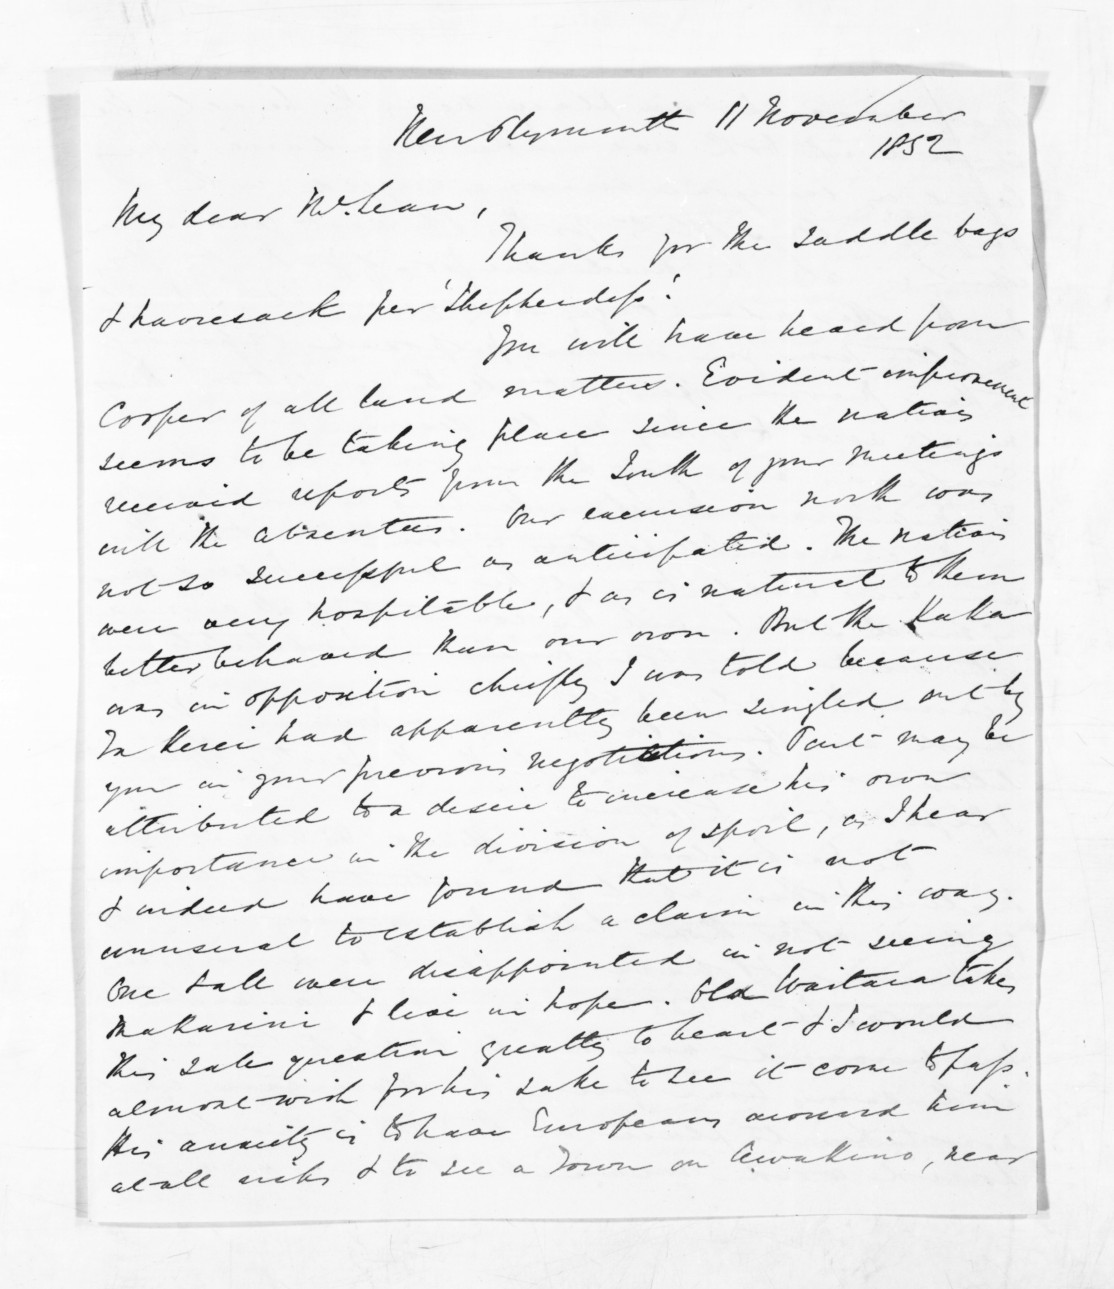 New Plymouth 11 November
1852
My dear McLean,
Thanks for the saddle bags
& havresack per 'Shepherdess'.
You will have heard from
Cooper of all land matters. Evident improvement
seems to be taking place since the natives
received reports from the South of your meetings
with the absentees. Our excursion north was
not so successful as anticipated. The natives
were very hospitable, & as is natural to them
better behaved than our own. But the Kaka
was in opposition chiefly I was told because
Ta Kerei had apparently been singled out by
you in your previous negotiations. Part may be
attributed to a desire to increase his own
importance in the division of spoil, as I hear
& indeed have found that it is not
unusual to establish a claim in this way.
One & all were disappointed in not seeing
Makarini & live in hope. Old Waitara takes
this sale question greatly to heart & I would
almost wish for his sake to see it come to pass.
His anxiety is to have Europeans around him
at all risks & to see a Town on Awakino, near